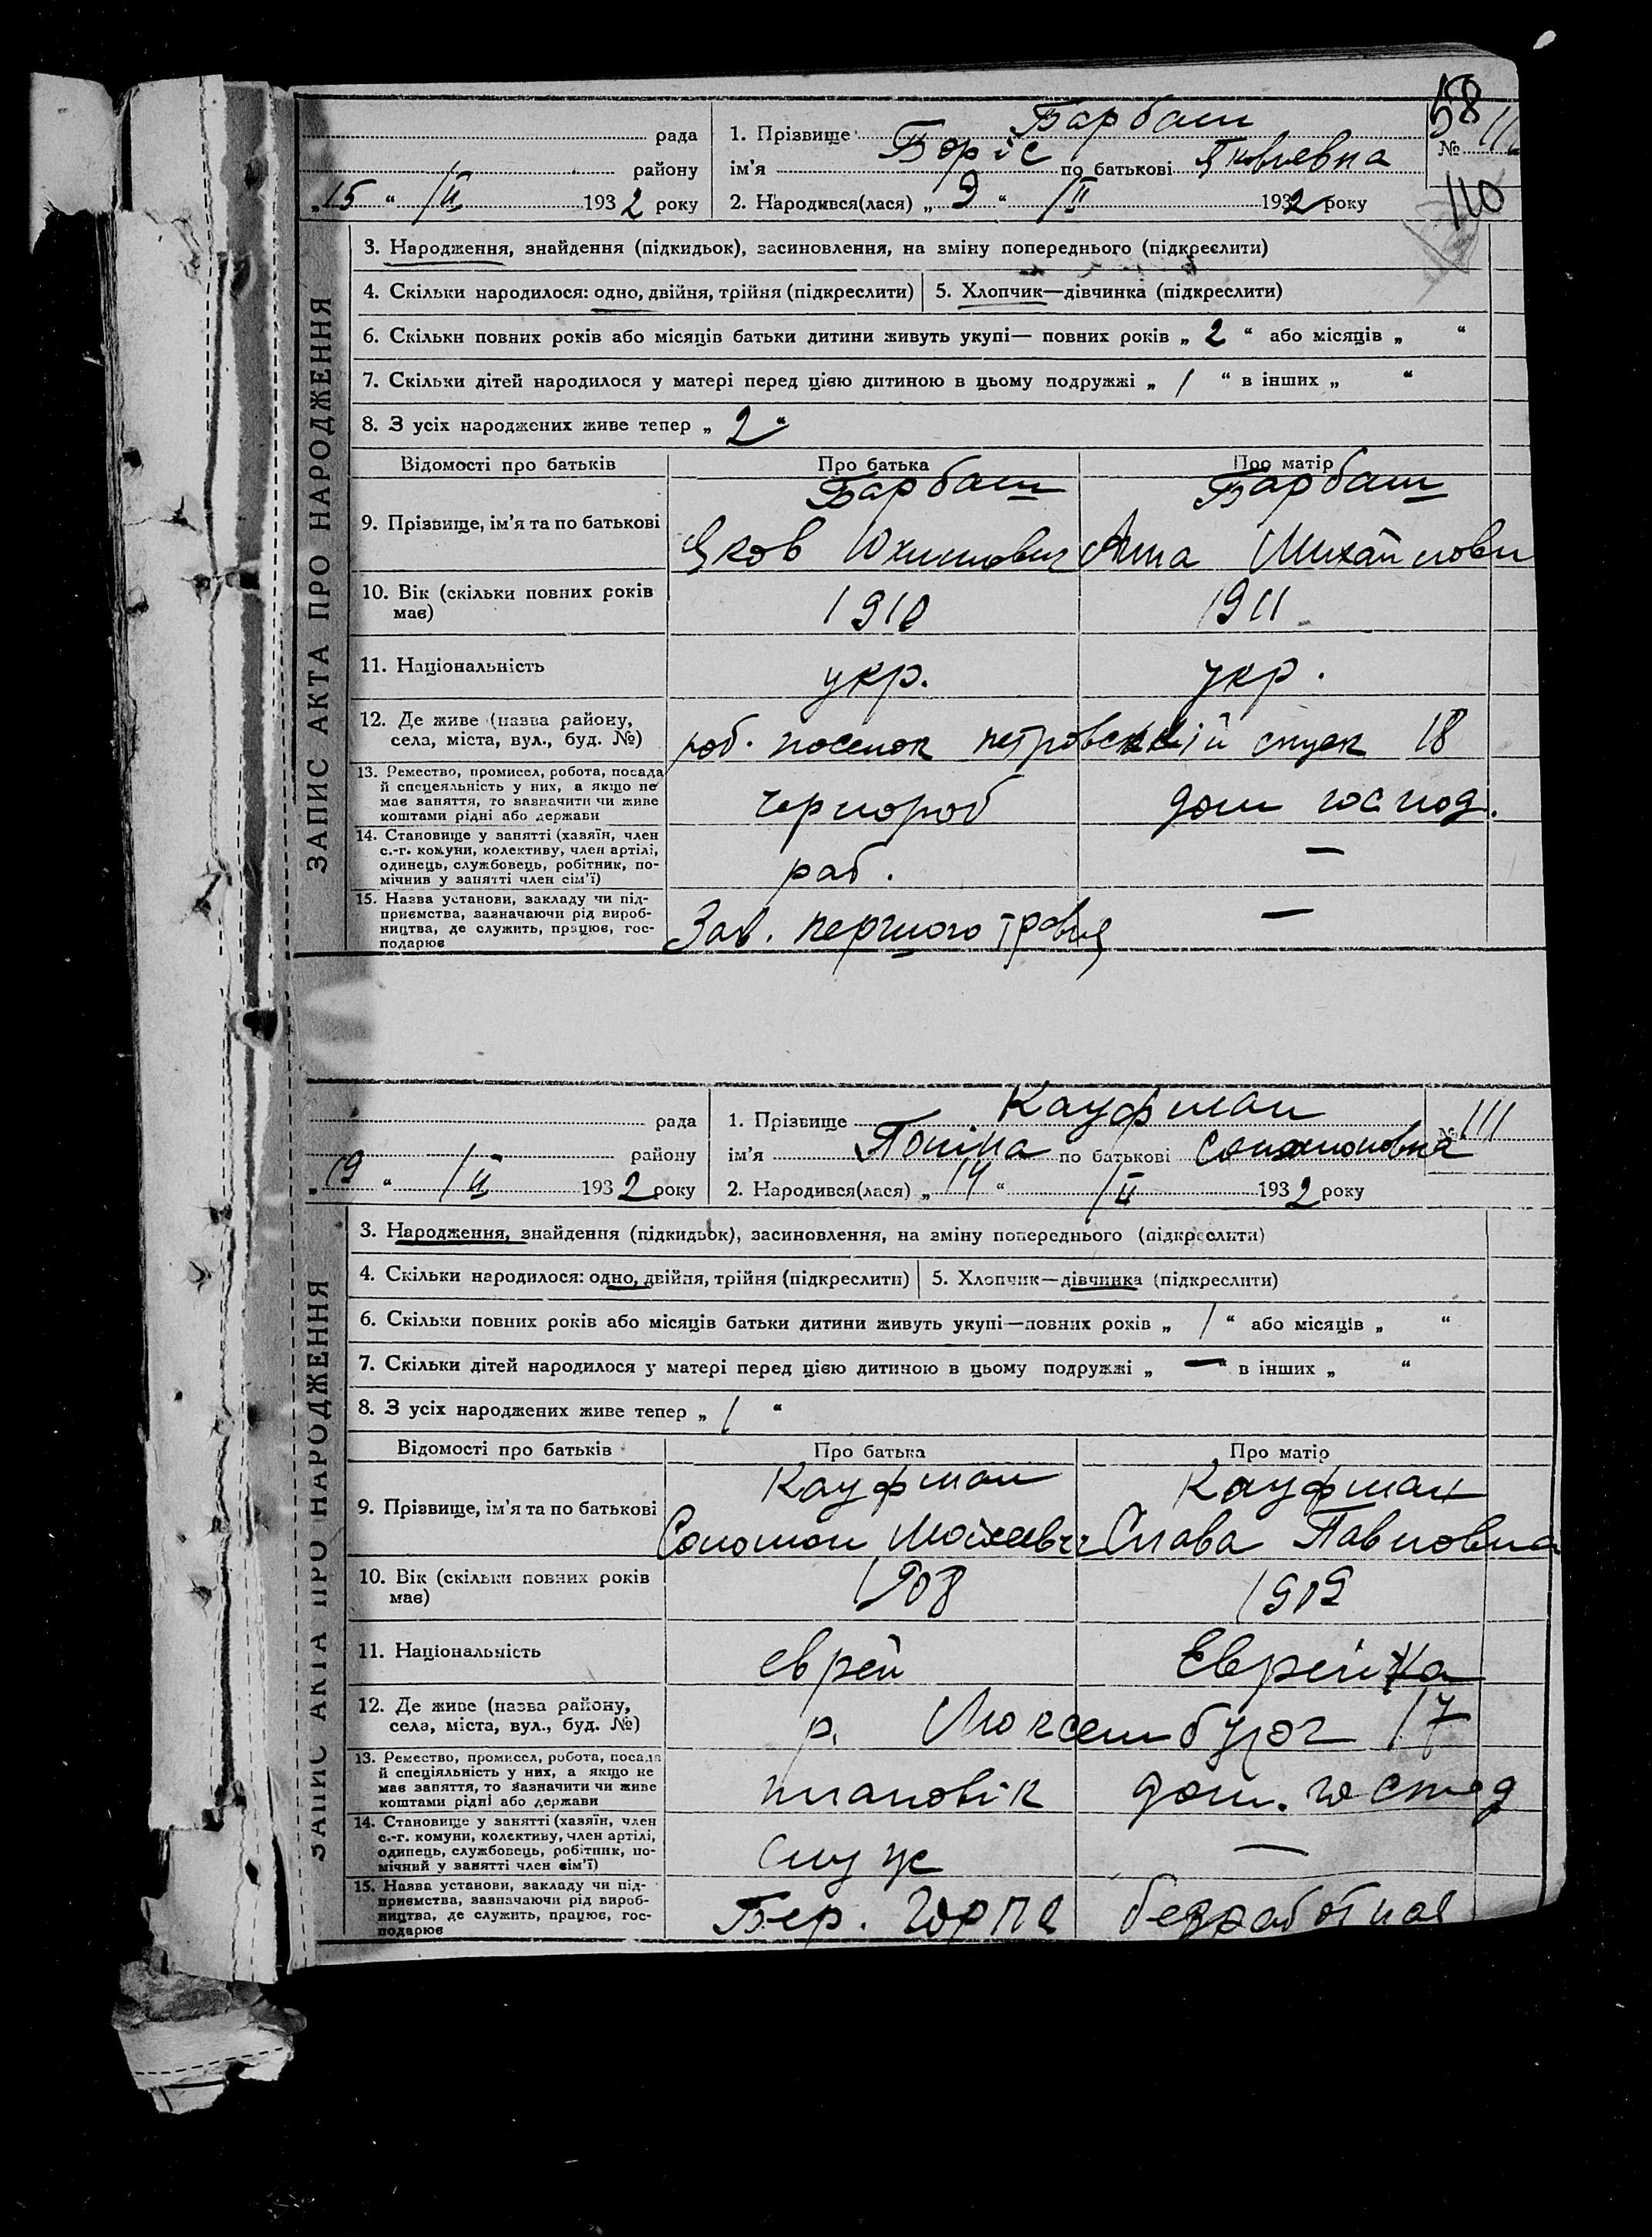 58
рада
1. Прізвище Барбаш
№ 11
району
ім'я Боріс по батькові Яковлевна
110
„15“ /II 1932 року
2. Народився(лася) „9“ /II 1932 року
ЗАПИС АКТА ПРО НАРОДЖЕННЯ
3. Народження, знайдення (підкидьок), засиновлення, на зміну попереднього (підкреслити)
4. Скільки народилося: одно, двійня, трійня (підкреслити)
5. Хлопчик—дівчинка (підкреслити)
6. Скільки повних років або місяців батьки дитини живуть укупі— повних років „2“ або місяців „ “
7. Скільки дітей народилося у матері перед цією дитиною в цьому подружжі „/“ в інших „ “
8. З усіх народжених живе тепер „2“
Відомості про батьків
Про батька
Про матір
9. Прізвище, ім'я та по батькові
Барбаш
Яков Юхимович
Барбаш
Анна Михайлови
10. Вік (скільки повних років
має)
1910
1911
11. Національність
укр.
укр.
12. Де живе (назва району,
села, міста, вул., буд. №)
роб. поселок петровский спуск 18
13. Ремество, промисел, робота, посада
й спецеяльність у них, а якщо не
має заняття, то зазначити чи живе
коштами рідні або держави
чорнороб
дом господ.
14. Становище у занятті (хазяїн, член
с.-г. комуни, колективу, член артілі,
одинець, службовець, робітник, по-
мічнив у занятті член сім'ї)
раб.
—
15. Назва установи, закладу чи під-
приємства, зазначаючи рід вироб-
ництва, де служить, працює, гос-
подарює
Зав. першого травня
—
рада
1. Прізвище Кауфман
№ 111
району
ім'я Поліна по батькові Соломоновна
„19“ /II 1932 року
2. Народився(лася) „14“ /II 1932 року
ЗАПИС АКТА ПРО НАРОДЖЕННЯ
3. Народження, знайдення (підкидьок), засиновлення, на зміну попереднього (підкреслити)
4. Скільки народилося: одно, двійня, трійня (підкреслити)
5. Хлопчик—дівчинка (підкреслити)
6. Скільки повних років або місяців батьки дитини живуть укупі—повних років „/“ або місяців „ “
7. Скільки дітей народилося у матері перед цією дитиною в цьому подружжі „—“ в інших „ “
8. З усіх народжених живе тепер „/“
Відомості про батьків
Про батька
Про матір
9. Прізвище, ім'я та по батькові
Кауфман
Соломон Моісеевич
Кауфман
Слава Павловна
10. Вік (скільки повних років
має)
1908
1909
11. Національність
еврей
Еврейка
12. Де живе (назва району,
села, міста, вул., буд. №)
р. Люксембург 17
13. Ремество, промисел, робота, посада
й спеціяльність у них, а якщо не
має заняття, то зазначити чи живе
коштами рідні або держави
плановік
дом. господ
14. Становище у занятті (хазяїн, член
с.-г. комуни, колективу, член артілі,
одинець, службовець, робітник, по-
мічний у занятті член сім'ї)
служ
—
15. Назва установи, закладу чи під-
приємства, зазначаючи рід вироб-
ництва, де служить, працює, гос-
подарює
Бер. Горпс
безработная